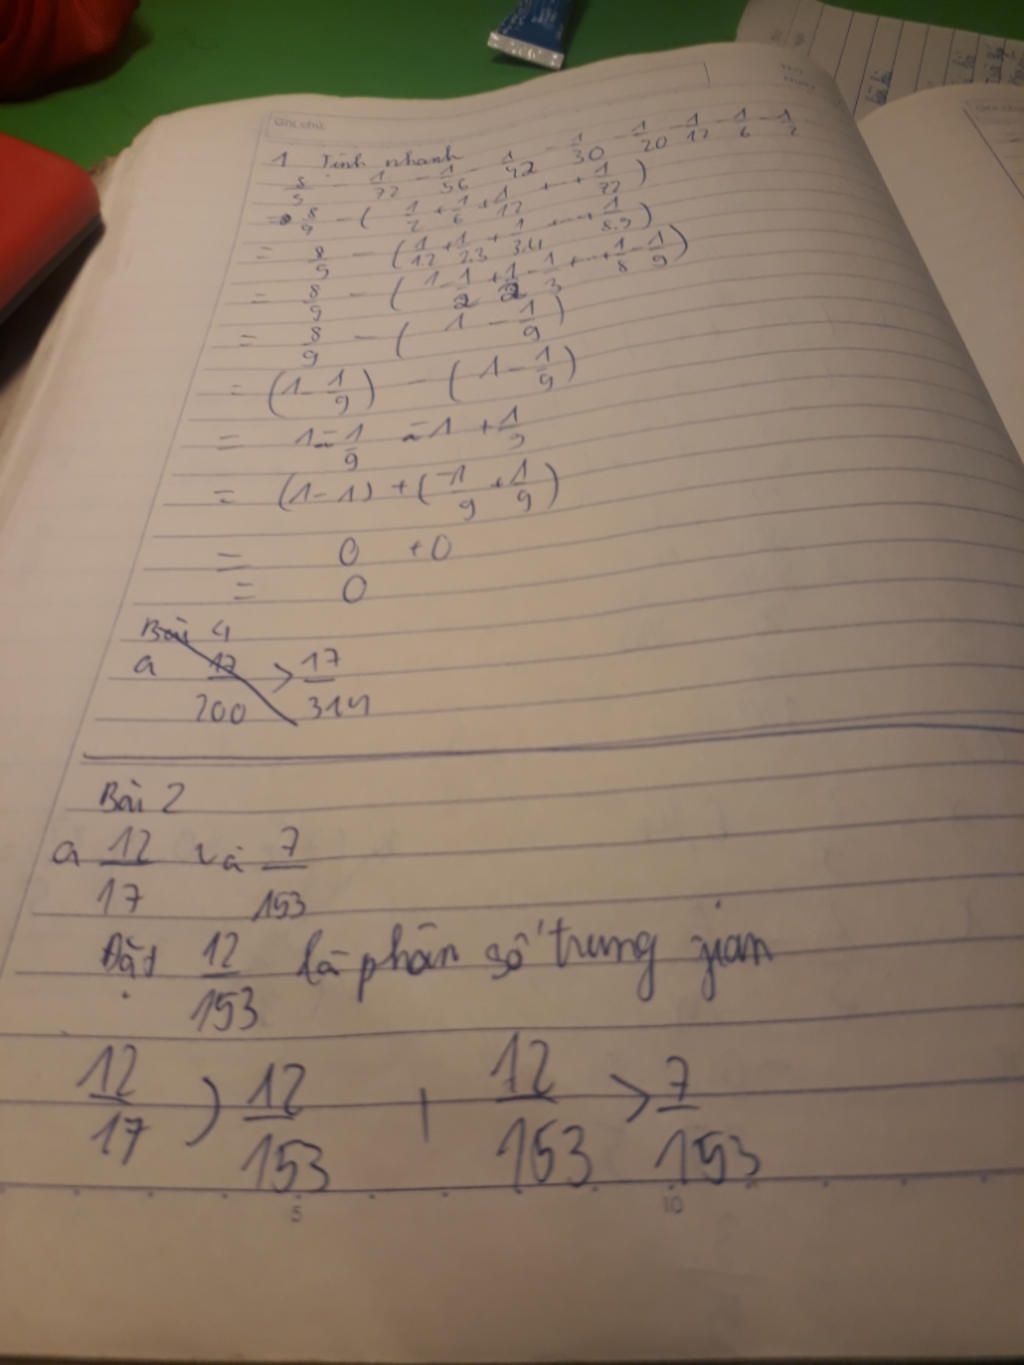 Ghi chú
1 Tính nhanh
8/9 - 1/72 - 1/56 - 1/42 - 1/30 - 1/20 - 1/12 - 1/6 - 1/2
= 8/9 - ( 1/2 + 1/6 + 1/12 + ... + 1/72 )
= 8/9 - ( 1/1.2 + 1/2.3 + 1/3.4 + ... + 1/8.9 )
= 8/9 - ( 1 - 1/2 + 1/2 - 1/3 + ... + 1/8 - 1/9 )
= 8/9 - ( 1 - 1/9 )
= ( 1 - 1/9 ) - ( 1 - 1/9 )
= 1 - 1/9 - 1 + 1/9
= (1 - 1) + ( -1/9 + 1/9 )
= 0 + 0
= 0
Bài 4
a 17/200 > 17/314
Bài 2
a 12/17 và 7/153
Đặt 12/153 là phân số trung gian
12/17 > 12/153 | 12/153 > 7/153
5 10